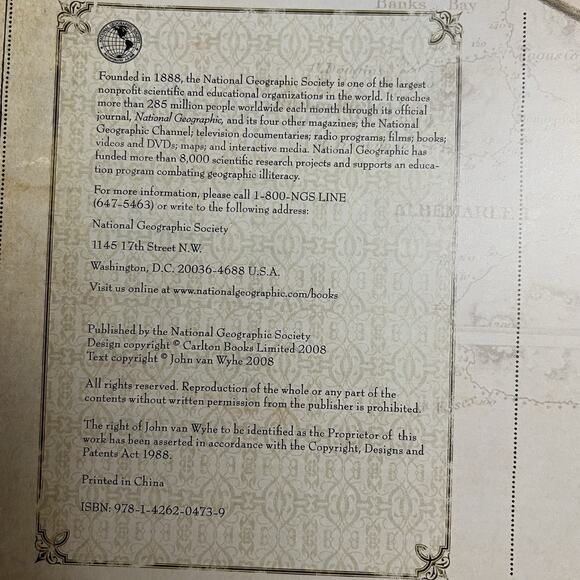 Banks Bay
Founded in 1888, the National Geographic Society is one of the largest
nonprofit scientific and educational organizations in the world. It reaches
more than 285 million people worldwide each month through its official
journal, National Geographic, and its four other magazines; the National
Geographic Channel; television documentaries; radio programs; films; books;
videos and DVDs; maps; and interactive media. National Geographic has
funded more than 8,000 scientific research projects and supports an educa-
tion program combating geographic illiteracy.
For more information, please call 1-800-NGS LINE
(647-5463) or write to the following address:
National Geographic Society
1145 17th Street N.W.
Washington, D.C. 20036-4688 U.S.A.
Visit us online at www.nationalgeographic.com/books
ALBEMARLE
Published by the National Geographic Society
Design copyright © Carlton Books Limited 2008
Text copyright © John van Wyhe 2008
All rights reserved. Reproduction of the whole or any part of the
contents without written permission from the publisher is prohibited.
The right of John van Wyhe to be identified as the Proprietor of this
work has been asserted in accordance with the Copyright, Designs and
Patents Act 1988.
Printed in China
ISBN: 978-1-4262-0473-9